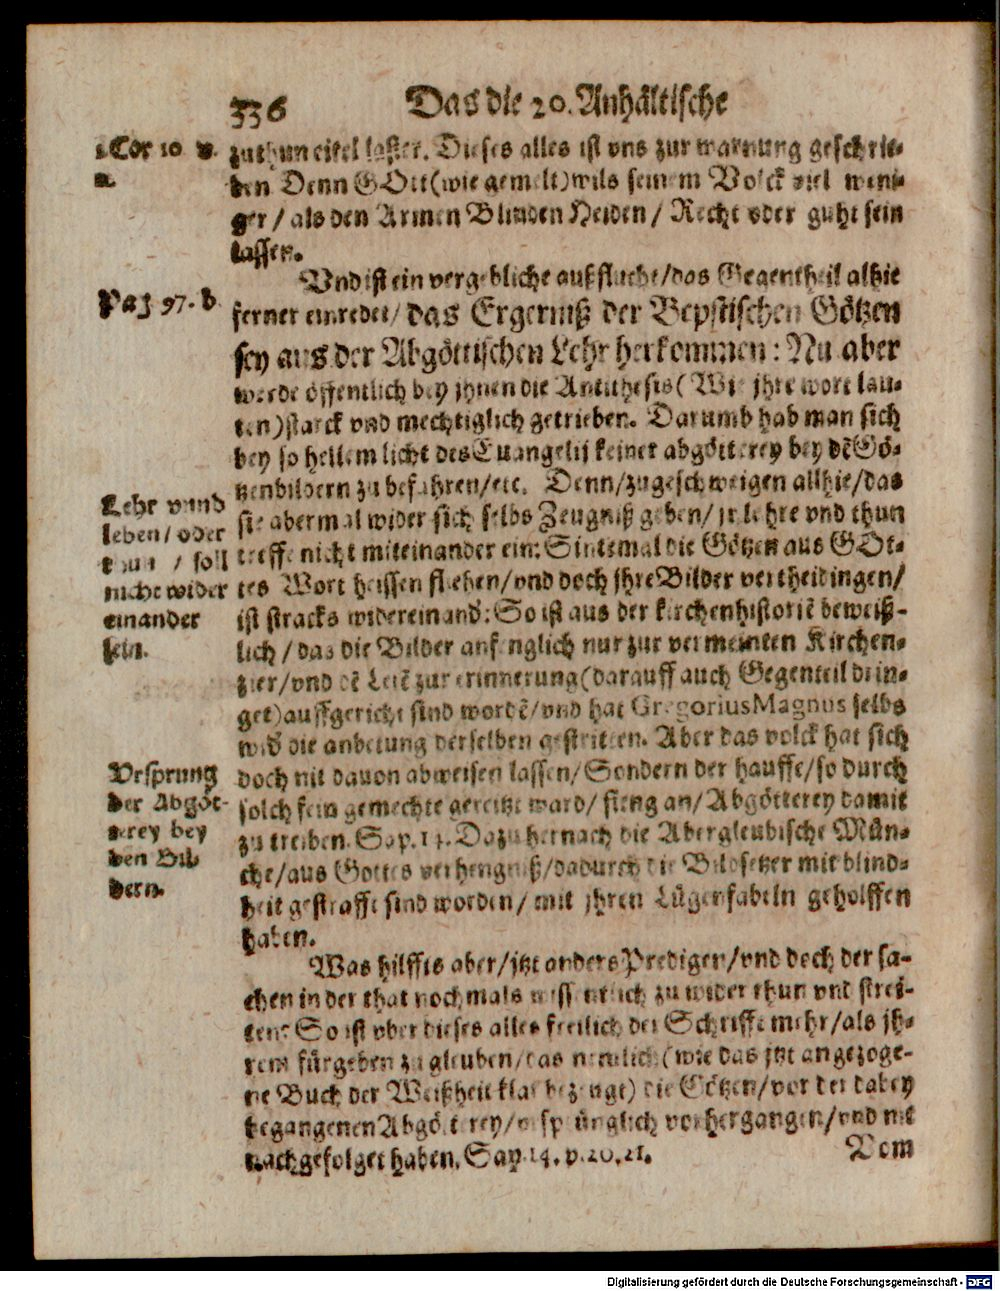 336 Das die 20. Anhältische
1. Cor 10. v.
11.
zuthun eitel laster. Dieses alles ist vns zur warnung geschrie-
ben Denn GOtt (wie gemelt) wils seinem Volck viel weni-
ger / als den Armen Blinden Heiden / Recht oder guht sein
lassen.
Vnd ist ein vergebliche außflucht / das Gegentheil alhie
Pag 97. b
ferner einredet / das Ergerniß der Bepstischen Götzen
sey aus der Abgöttischen Lehr herkommen: Nu aber
werde öffentlich bey jhnen die Antithesis (Wie jhre wort lau-
ten) starck vnd mechtiglich getrieben. Darumb hab man sich
bey so hellem licht des Euangelij keiner abgötterey bey dẽ Gö-
tzenbildern zu befahren / etc. Denn / zugeschweigen allhie / das
Lehr vnnd
leben / oder
thun / soll
nicht wider
einander
sein.
sie abermal wider sich selbs Zeugniß geben / jr lehre vnd thun
treffe nicht miteinander ein: Sintemal die Götzen aus GOt-
tes Wort heissen fliehen / vnd doch jhre Bilder vertheidingen /
ist stracks widereinand: So ist aus der kirchenhistoriẽ beweiß-
lich / das die Bilder anfenglich nur zur vermeinten Kirchen-
zier / vnd dẽ Leiẽ zur erinnerung (darauff auch Gegenteil drin-
get) auffgericht sind wordẽ / vnd hat Gregorius Magnus selbs
wid die anbetung derselben gestritten. Aber das volck hat sich
Vrsprung
der Abgöt-
terey bey
den Bil-
dern.
doch nit dauon abweisen lassen / Sondern der hauffe / so durch
solch fein gemechte gereitzt ward / fieng an / Abgötterey damit
zu treiben. Sap. 14. Dazu hernach die Abergleubische Mün-
che / aus Gottes verhengniß / dadurch die Bildsetzer mit blind-
heit gestrafft sind worden / mit jhren Lügenfabeln geholffen
haben.
Was hilffts aber / jtzt anders Predigen / vnd doch der sa-
chen in der that nochmals wissentlich zu wider thun vnd strei-
ten? So ist vber dieses alles freilich der Schrifft mehr / als jh-
rem fürgeben zu gleuben / das nemlich (wie das jtzt angezoge-
ne Buch der Weißheit klar bezeugt) die Götzen / vor der dabey
begangenen Abgötterey / vrsprünglich vorhergangen / vnd nit
nachgefolget haben. Sap. 14. v. 20. 21.
Vom
Digitalisierung gefördert durch die Deutsche Forschungsgemeinschaft - DFG